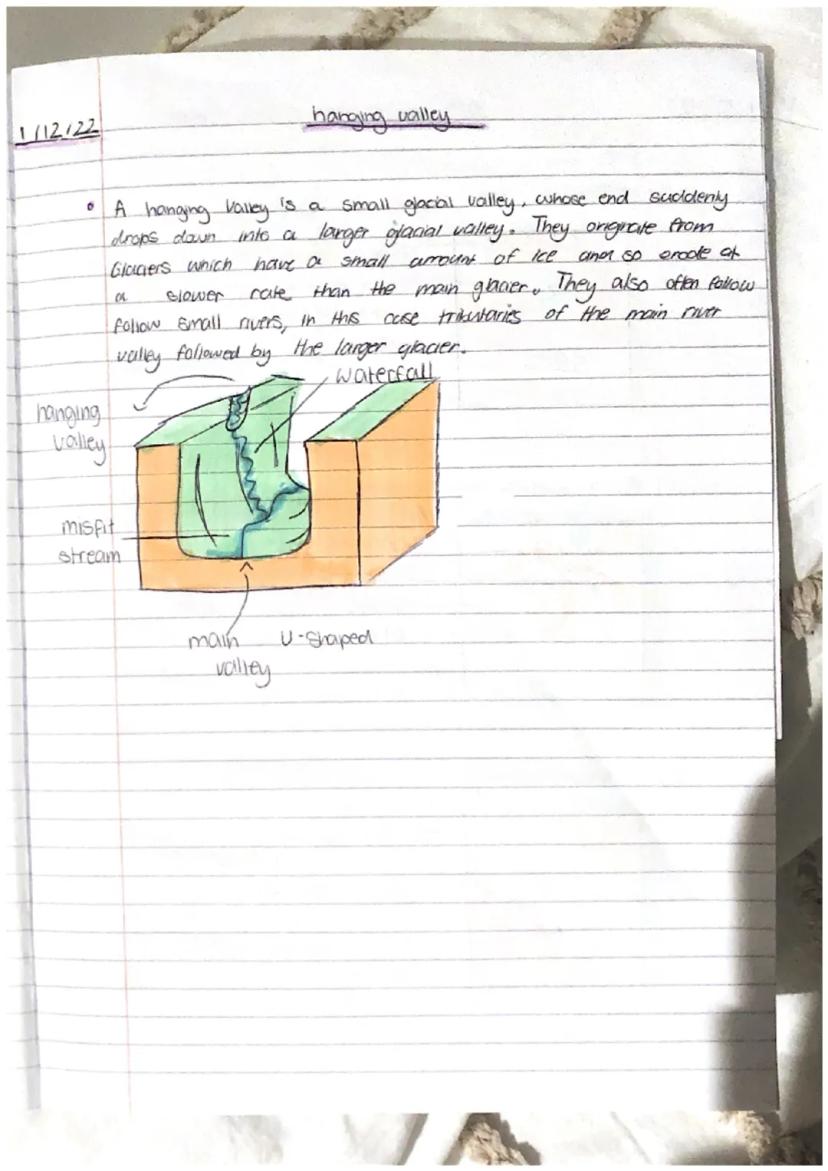 hanging valley
1/12/22
A hanging valley is a small glacial valley, whose end suddenly
drops down into a larger glacial valley. They originate from
Glaciers which have a small amount of ice and so erode at
a slower rate than the main glacier. They also often follow
follow small rivers, in this case tributaries of the main river
valley followed by the larger glacier.
waterfall
hanging
valley
misfit
stream
main U-shaped
valley